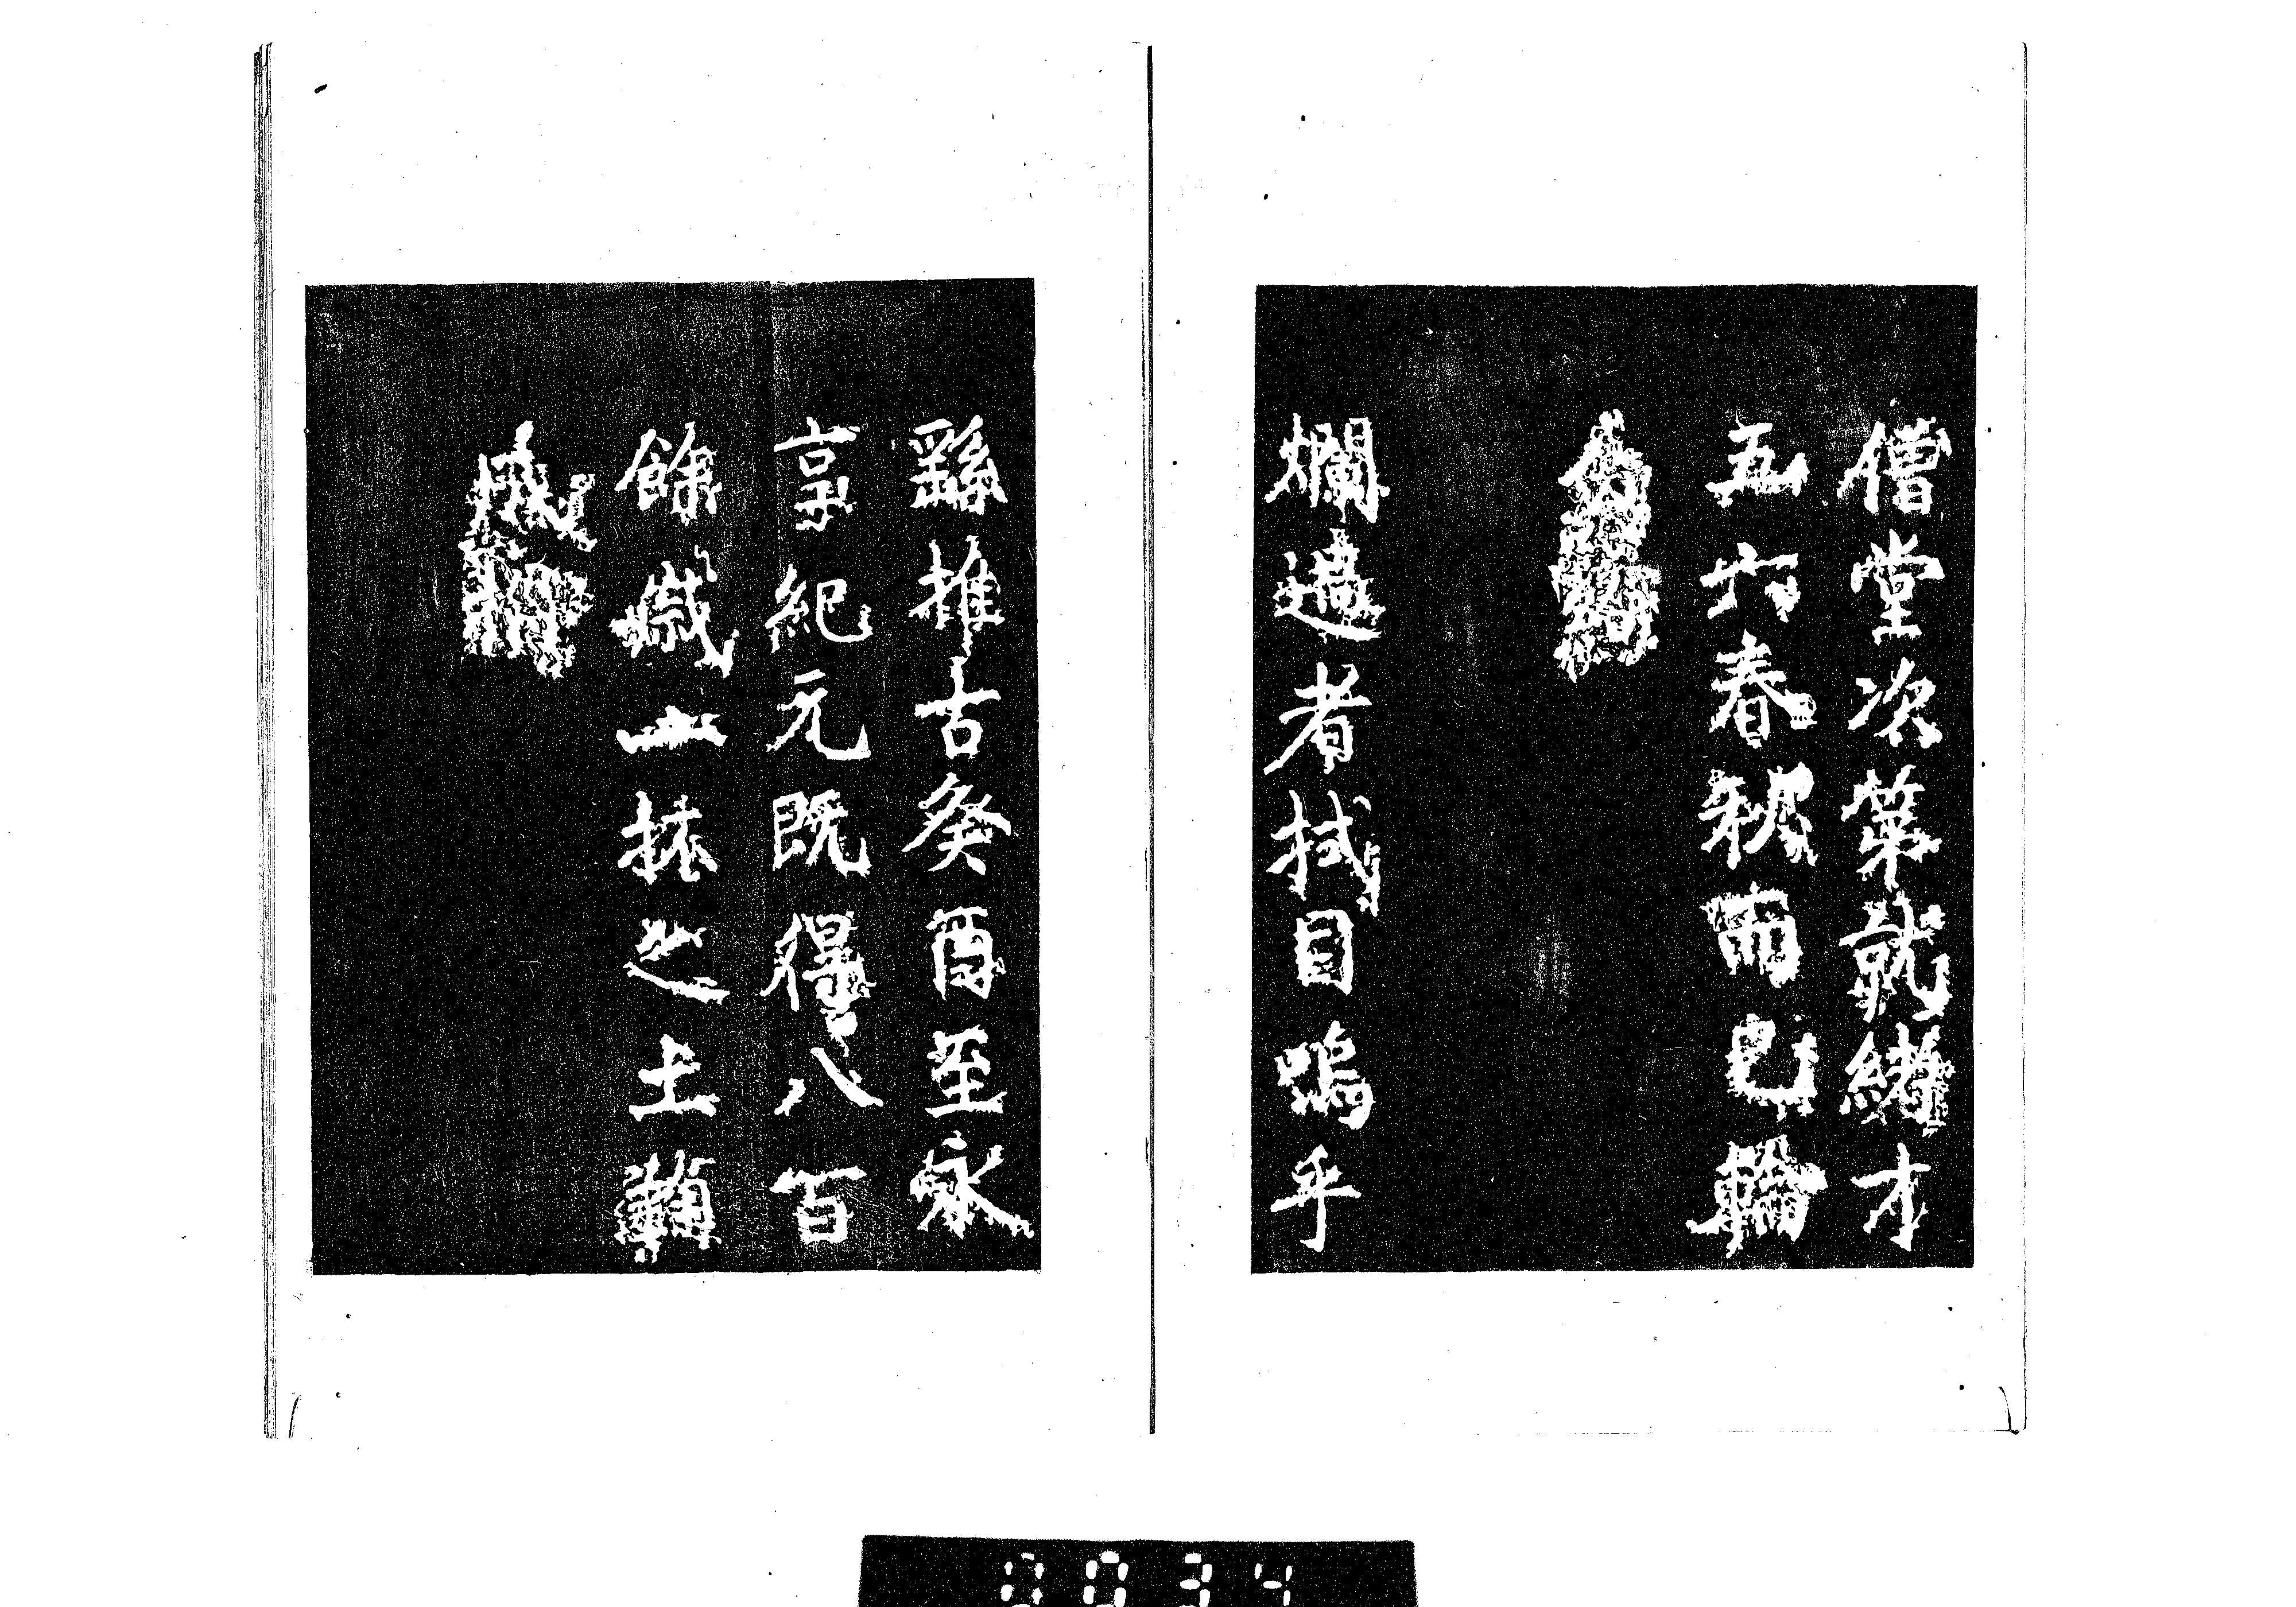 僧堂次第就緒才
五六春秋而已輪
爛過者拭目嗚乎
繇推古癸酉至永
享紀元既得八百
餘歲一抹之土
0034